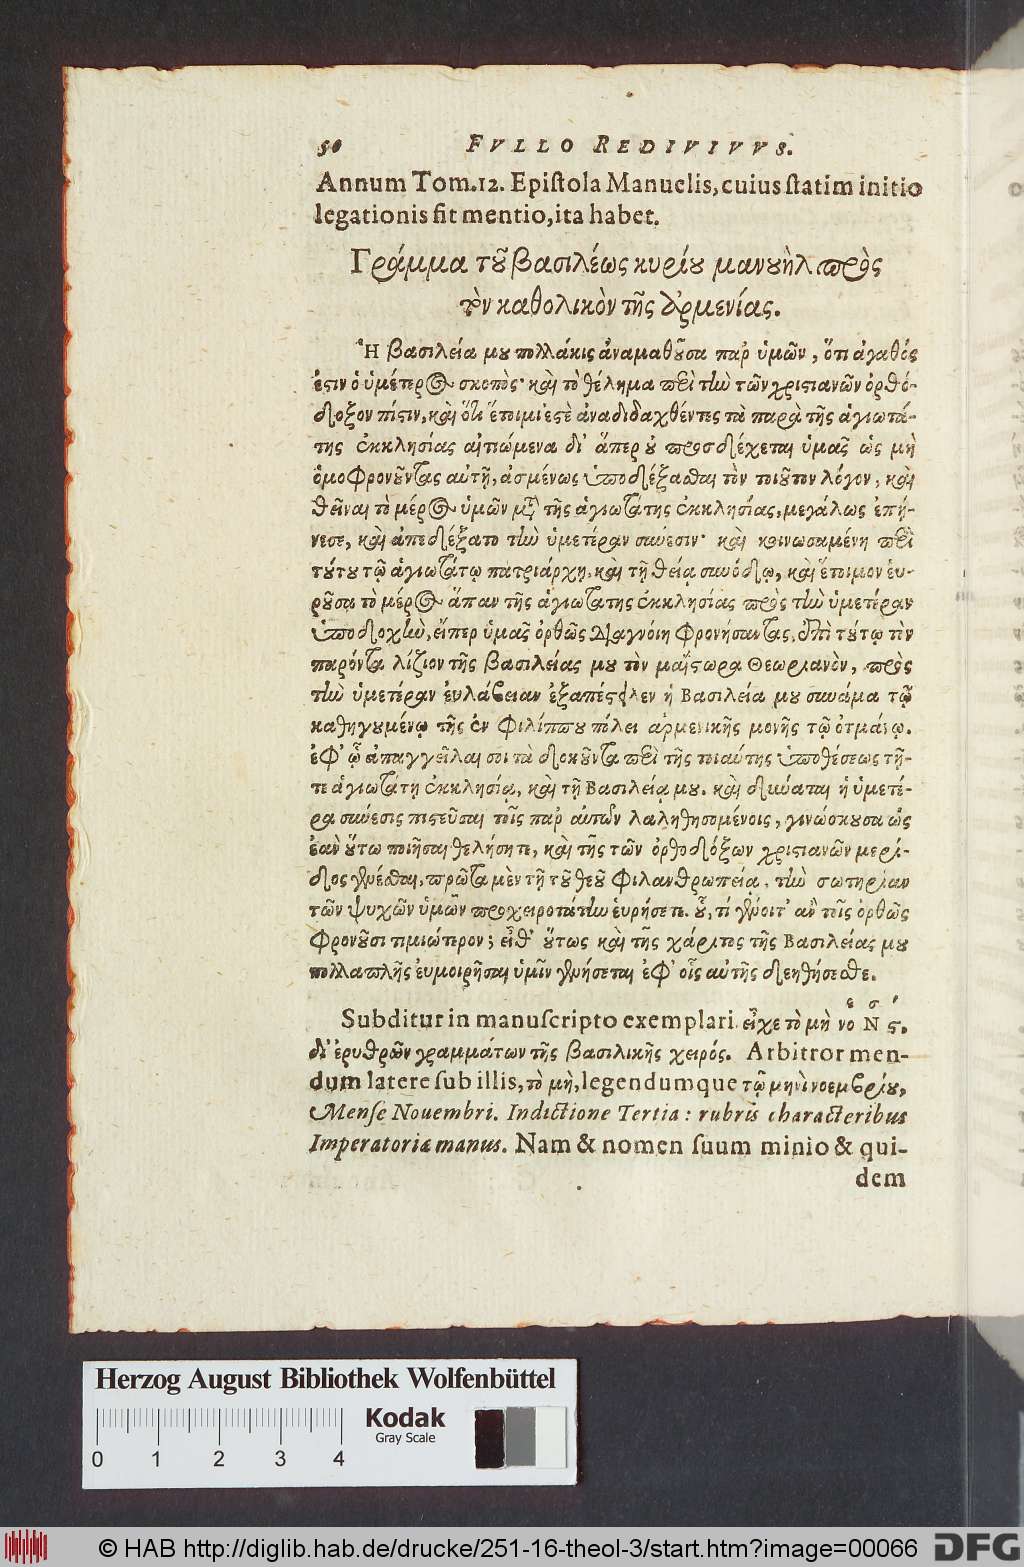 50 FVLLO REDIVIVVS.
Annum Tom.12. Epiſtola Manuelis, cuius ſtatim initio
legationis fit mentio, ita habet.
Γράμμα τȣ͂ βασιλέως κυρίȣ μανȣὴλ πρὸς
τὸν καθολικὸν τῆς Ἀρμενίας.
Ἡ βασιλεία μȣ πολλάκις ἀναμαθȣ͂σα παρ' ὑμῶν, ὅτι ἀγαθός
ἐστιν ὁ ὑμέτερος σκοπὸς· καὶ τὸ θέλημα περὶ τὴν τῶν χριστιανῶν ὀρθό-
δοξον πίστιν, καὶ ὅτι ἕτοιμί ἐστὲ ἀναδιδαχθέντες τὰ παρὰ τῆς ἁγιωτά-
της ἐκκλησίας αἰτιώμενα δι' ἅπερ ȣ̓ προσδέχεται ὑμᾶς ὡς μὴ
ὁμοφρονȣ͂ντας αὐτῇ, ἀσμένως ὑποδέξασθαι τὸν τοιȣ͂τον λόγον, καὶ
θεῖναι τὸ μέρος ὑμῶν μετὰ τῆς ἁγιωτάτης ἐκκλησίας, μεγάλως ἐπή-
νεσε, καὶ ἀπεδέξατο τὴν ὑμετέραν σύνεσιν· καὶ κοινωσαμένη περὶ
τȣ́τȣ τῷ ἁγιωτάτῳ πατριάρχῃ, καὶ τῇ θείᾳ συνόδῳ, καὶ ἕτοιμον εὑ-
ρȣ͂σα τὸ μέρος ἅπαν τῆς ἁγιωτάτης ἐκκλησίας πρὸς τὴν ὑμετέραν
ὑποδοχὴν, εἴπερ ὑμᾶς ὀρθῶς διαγνοίη φρονήσαντας, ἐπὶ τȣ́τῳ τὸν
παρόντα λίζιον τῆς βασιλείας μȣ τὸν μαΐστωρα Θεωριανὸν, πρὸς
τὴν ὑμετέραν ἐυλάβειαν ἐξαπέστειλεν ἡ Βασιλεία μȣ συνάμα τῷ
καθηγȣμένῳ τῆς ἐν Φιλίππȣ πόλει ἀρμενικῆς μονῆς τῷ ὀτμάνῳ.
ἐφ' ᾧ ἀπαγγεῖλαι σοι τὰ δοκȣ͂ντα περὶ τῆς τοιαύτης ὑποθέσεως τῇ-
τε ἁγιωτάτῃ ἐκκλησίᾳ, καὶ τῇ Βασιλείᾳ μȣ. καὶ δύναται ἡ ὑμετέ-
ρα σύνεσις πιστεῦσαι τοῖς παρ' αὐτῶν λαληθησομένοις, γινώσκȣσα ὡς
ἐὰν ȣ̔́τω ποιῆσαι θελήσητε, καὶ τῆς τῶν ὀρθοδόξων χριστιανῶν μερί-
δος γενέσθαι, πρῶτα μὲν τῇ τȣ͂ θεȣ͂ φιλανθρωπείᾳ, τὴν σωτηρίαν
τῶν ψυχῶν ὑμῶν προχειροτάτην ἑυρήσετε. ȣ̓͂, τί γένοιτ' ἂν τοῖς ὀρθῶς
φρονȣ͂σι τιμιώτερον; εἶθ' ȣ̔́τως καὶ τῆς χάριτος τῆς Βασιλείας μȣ
πολλαπλῆς ἐυμοιρῆσαι ὑμῖν γενήσεται ἐφ' οἷς αὐτῆς δεηθήσεσθε.
Subditur in manuſcripto exemplari εἶχε τὸ μὴ νο Ν ς.
δι' ἐρυθρῶν γραμμάτων τῆς βασιλικῆς χειρός. Arbitror men-
dum latere ſub illis, τὸ μὴ, legendumque τῷ μηνὶ νοεμβρίȣ,
Menſe Nouembri. Indictione Tertia: rubris characteribus
Imperatoriæ manus. Nam & nomen ſuum minio & qui-
dem
Herzog August Bibliothek Wolfenbüttel
Kodak
Gray Scale
0 1 2 3 4
© HAB http://diglib.hab.de/drucke/251-16-theol-3/start.htm?image=00066
DFG